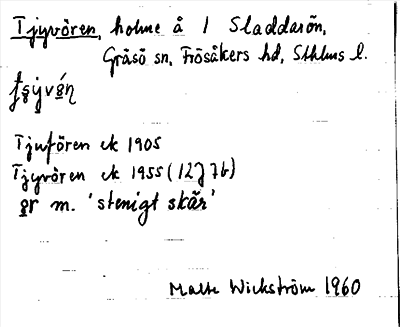 Tjyvören, holme å 1 Sladdarön,
Gräsö sn, Frösåkers hd, Sthlms l.
Tjuvören ek 1905
Tjyvören ek 1955 (12J7b)
ør m. 'stenigt skär'
Malte Wickström 1960